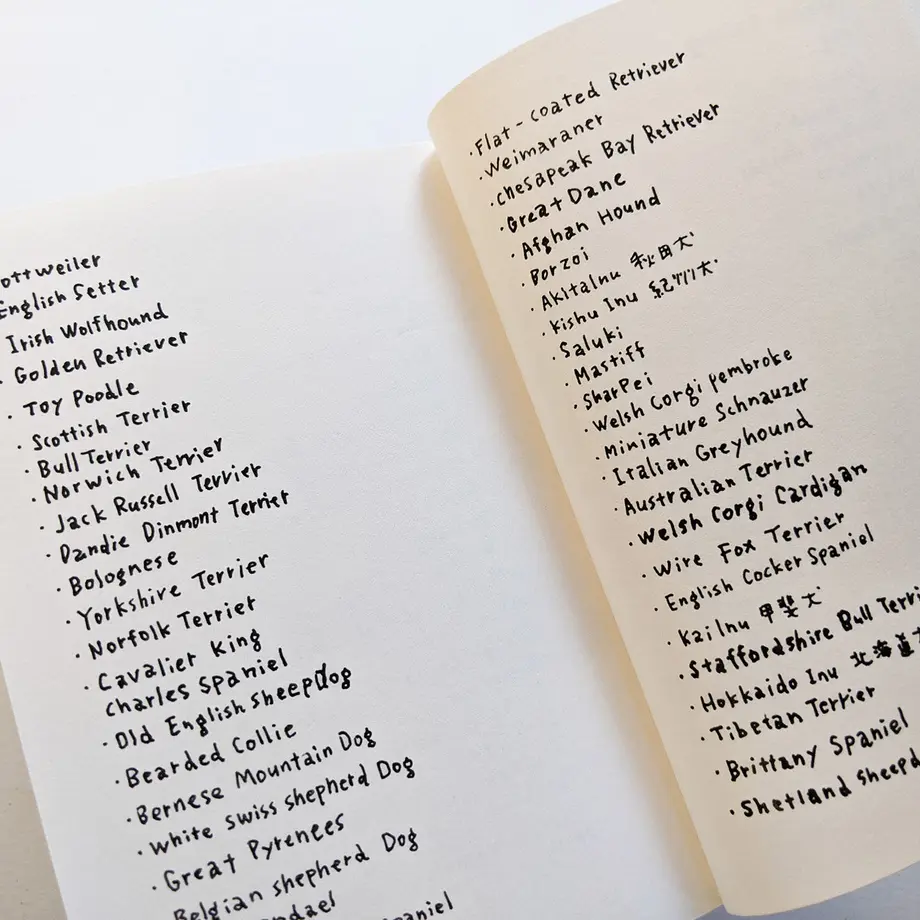 ottweiler
English Setter
Irish Wolfhound
· Golden Retriever
· Toy Poodle
· Scottish Terrier
· Bull Terrier
· Norwich Terrier
· Jack Russell Terrier
· Dandie Dinmont Terrier
· Bolognese
· Yorkshire Terrier
· Norfolk Terrier
· Cavalier King
Charles Spaniel
· Old English Sheepdog
· Bearded Collie
· Bernese Mountain Dog
· White Swiss Shepherd Dog
· Great Pyrenees
Belgian shepherd Dog
ndael
paniel
· Flat-coated Retriever
· Weimaraner
· Chesapeak Bay Retriever
· Great Dane
· Afghan Hound
· Borzoi
· AkitaInu 秋田犬
· Kishu Inu 紀州犬
· Saluki
· Mastiff
· SharPei
· Welsh Corgi pembroke
· Miniature Schnauzer
· Italian Greyhound
· Australian Terrier
· Welsh Corgi Cardigan
· Wire Fox Terrier
· English Cocker Spaniel
· KaiInu 甲斐犬
· Staffordshire Bull Terri
· Hokkaido Inu 北海道犬
· Tibetan Terrier
· Brittany Spaniel
· Shetland Sheepd